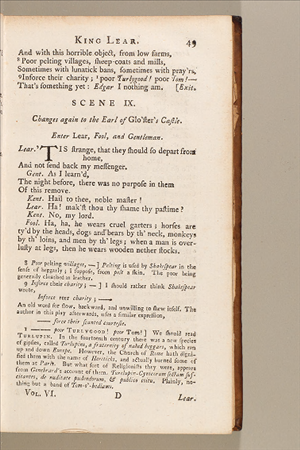 KING LEAR. 49
And with this horrible object, from low farms,
⁸ Poor pelting villages, sheep-coats and mills,
Sometimes with lunatick bans, sometimes with pray'rs,
⁹ Inforce their charity; ¹ poor Turlygood! poor Tom!—
That's something yet: Edgar I nothing am. [Exit.
SCENE IX.
Changes again to the Earl of Glo'ster's Castle.
Enter Lear, Fool, and Gentleman.
Lear. 'TIS strange, that they should so depart from
home,
And not send back my messenger.
Gent. As I learn'd,
The night before, there was no purpose in them
Of this remove.
Kent. Hail to thee, noble master!
Lear. Ha! mak'st thou thy shame thy pastime?
Kent. No, my lord.
Fool. Ha, ha, he wears cruel garters; horses are
ty'd by the heads, dogs and bears by th' neck, monkeys
by th' loins, and men by th' legs; when a man is over-
lusty at legs, then he wears wooden nether stocks.
8 Poor pelting villages, —] Pelting is used by Shakespear in the
sense of beggarly; I suppose, from pelt a skin. The poor being
generally cloathed in leather.
9 Inforce their charity; —] I should rather think Shakespear
wrote,
Inforce rare charity; —
An old word for slow, backward, and unwilling to shew itself. The
author in this play afterwards, uses a similar expression,
—— force their scanted courtesie.
1 —— poor TURLYGOOD! poor Tom!] We should read
TURLUPIN. In the fourteenth century there was a new species
of gipsies, called Turlupins, a fraternity of naked beggars, which ran
up and down Europe. However, the Church of Rome hath digni-
fied them with the name of Heretics, and actually burned some of
them at Paris. But what sort of Religionists they were, appears
from Genebrard's account of them. Turelupin Cynicorum sectam sus-
citantes, de nuditate pudendorum, & publico coitu. Plainly, no-
thing but a band of Tom-o'-bedlams.
VOL. VI. D Lear.